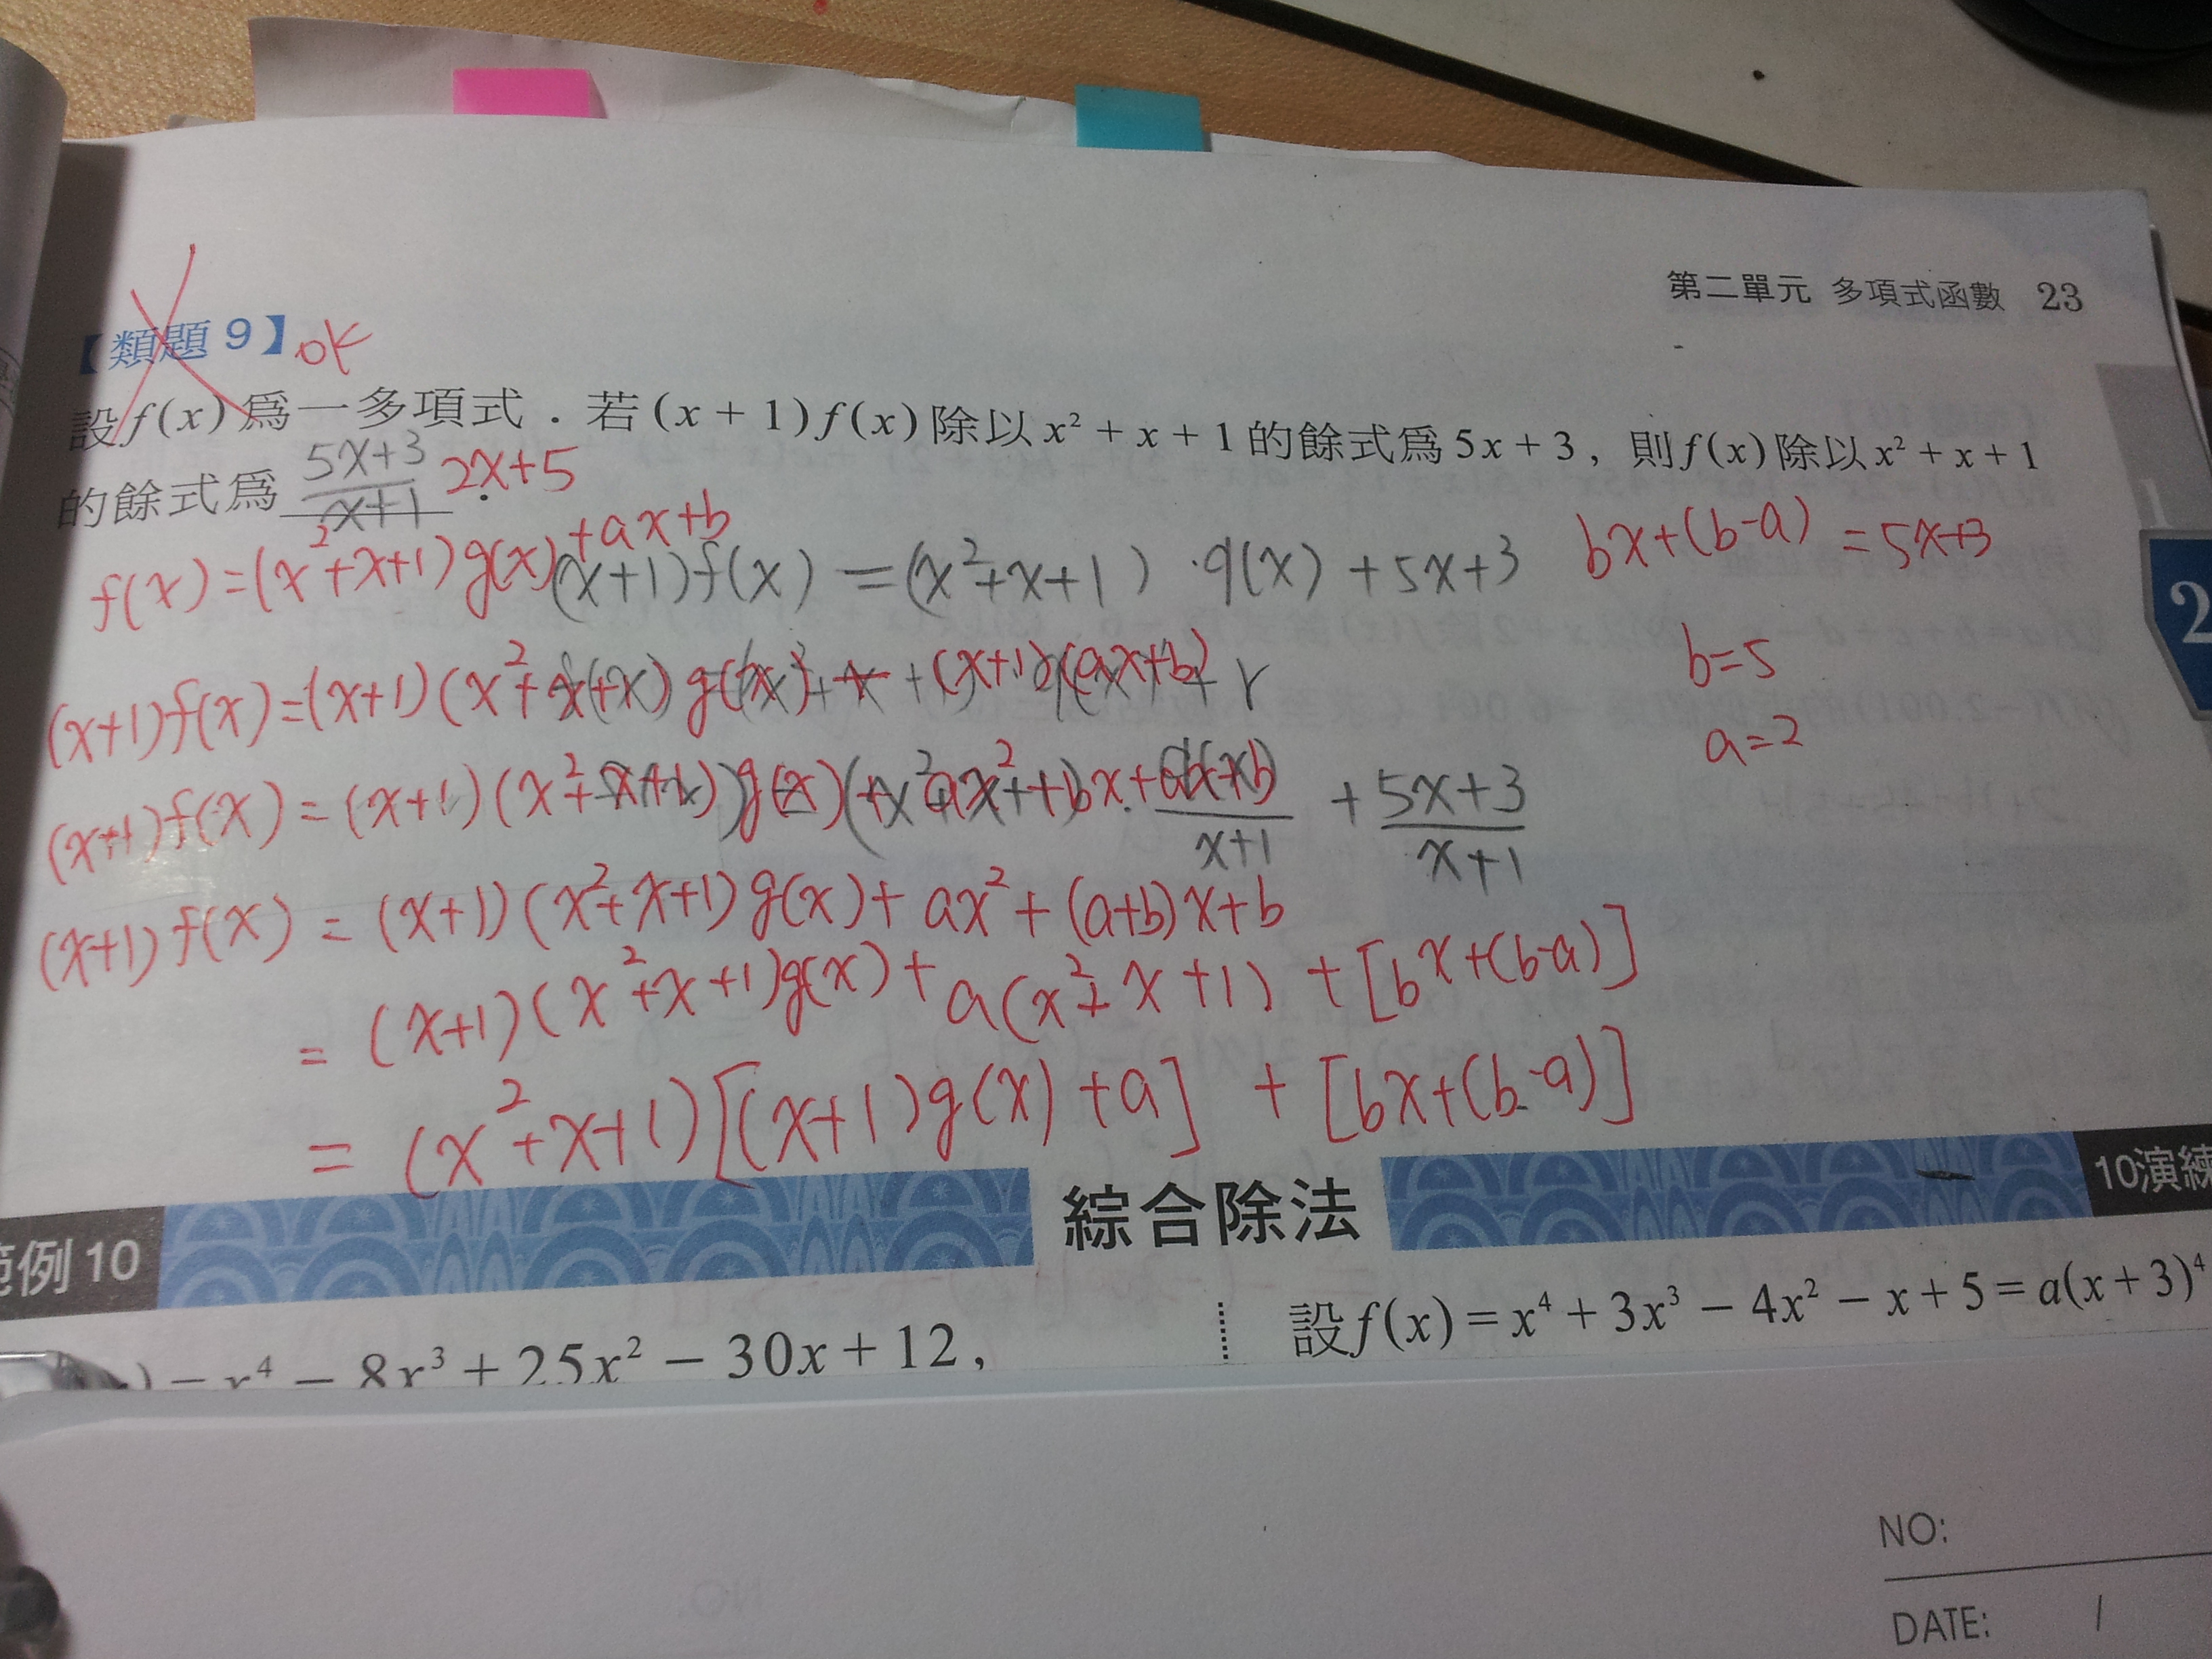 第二單元 多項式函數 23
【類題9】ok
設f(x)為一多項式．若(x + 1)f(x)除以x² + x + 1的餘式為5x + 3，則f(x)除以x² + x + 1
的餘式為 (5x+3)/(x+1) 2x+5 .
f(x)=(x²+x+1)g(x)+ax+b
(x+1)f(x)=(x²+x+1)·q(x)+5x+3
bx+(b-a)=5x+3
b=5
a=2
(x+1)f(x)=(x+1)(x²+x+x)g(x)+(x+1)(ax+b)
+r
(x+1)f(x)=(x+1)
+ (5x+3)/(x+1)
(x+1)f(x)=(x+1)(x²+x+1)g(x)+ax²+(a+b)x+b
=(x+1)(x²+x+1)g(x)+a(x²+x+1)+[bx+(b-a)]
=(x²+x+1)[(x+1)g(x)+a]+[bx+(b-a)]
綜合除法
10演練
範例10
x⁴ − 8x³ + 25x² − 30x + 12,
設f(x) = x⁴ + 3x³ − 4x² − x + 5 = a(x + 3)⁴
2
NO:
DATE: /